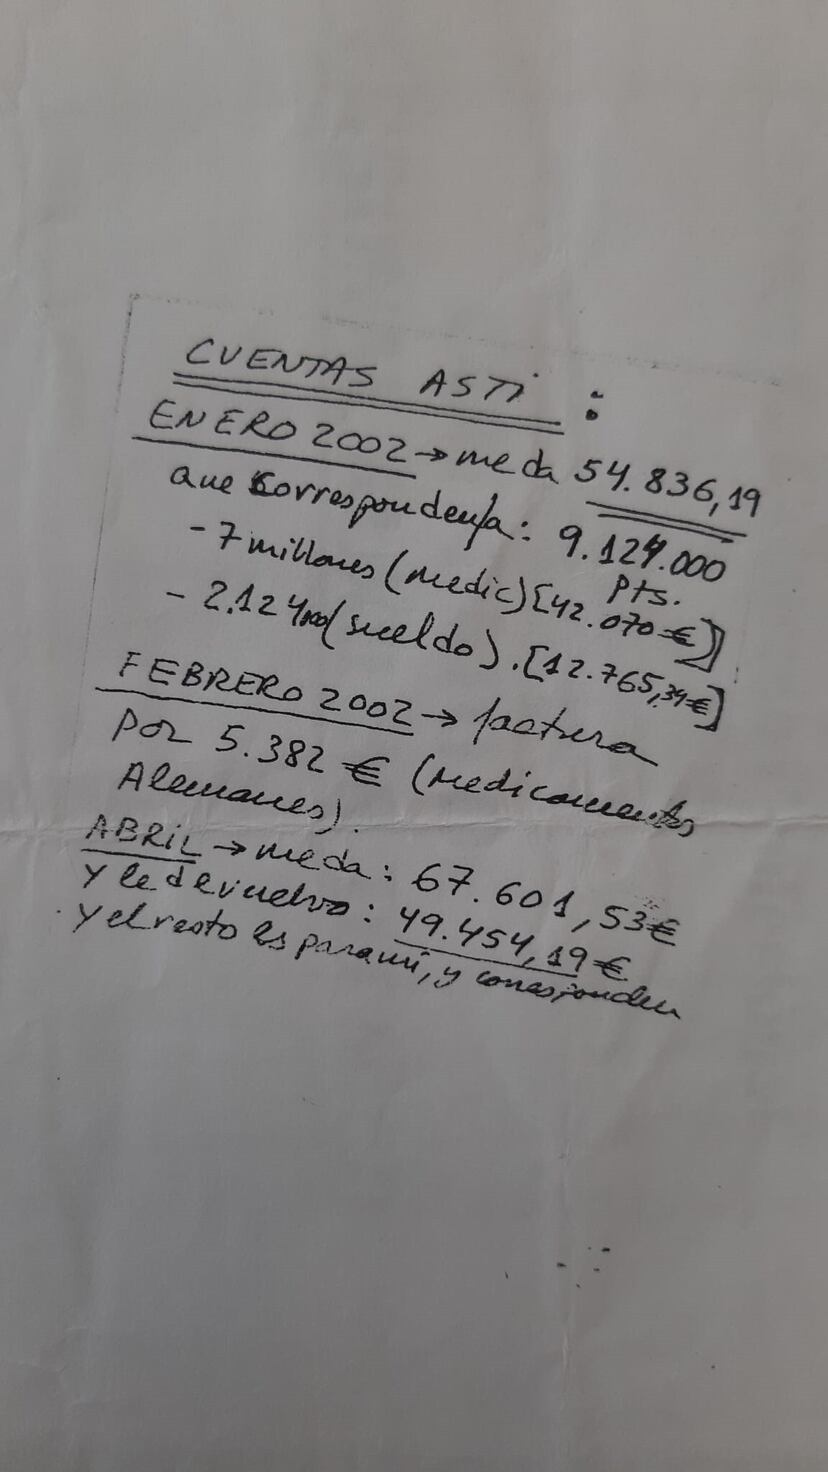 CUENTAS ASTI :
ENERO 2002 → me da 54.836,19
que corresponden/a: 9.124.000
Pts.
- 7 millones (medic) [42.070 €]
- 2.124 000 (sueldo). [12.765,39 €]
FEBRERO 2002 → factura
por 5.382 € (medicamentos
Alemanes).
ABRIL → me da: 67.601,53 €
y le devuelvo: 49.454,19 €
y el resto es para mi, y corresponden